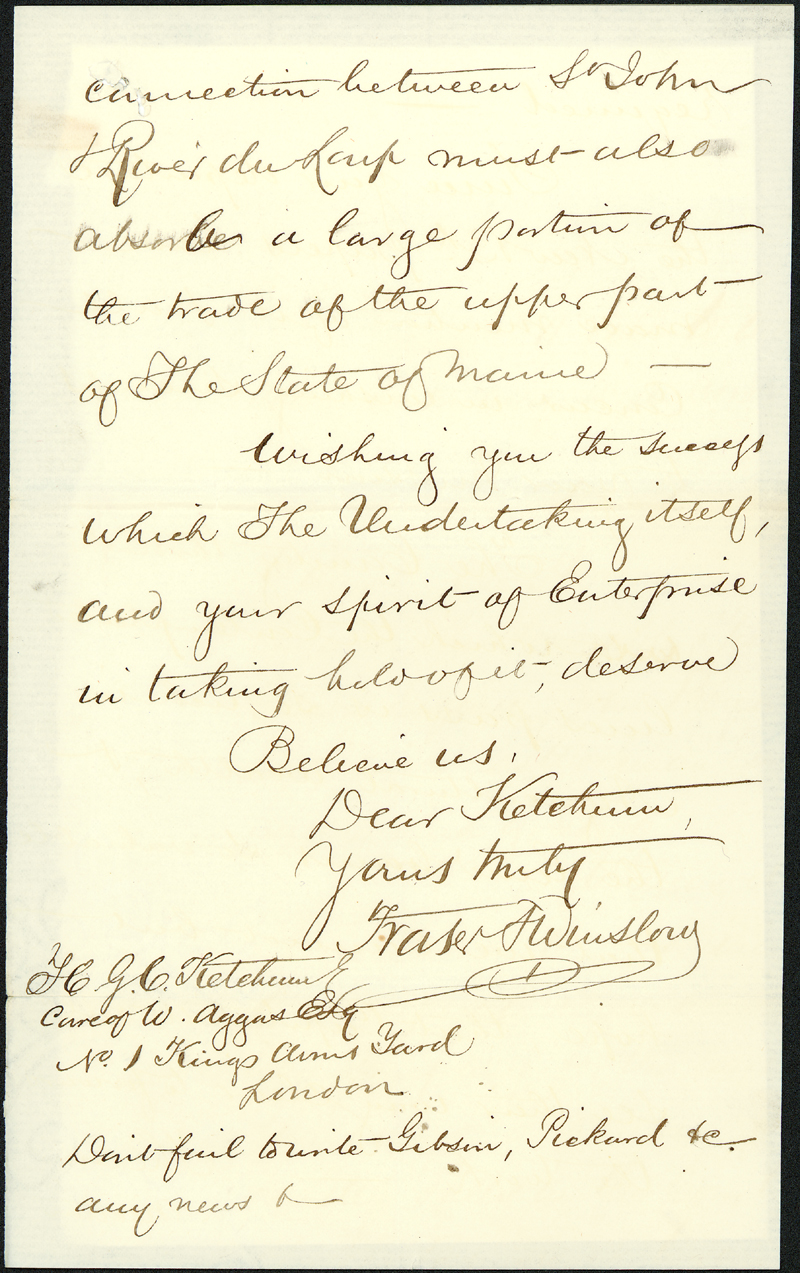 connection between St John
& River du Loup must also
absorbe a large portion of
the trade of the upper part
of The State of Maine —
Wishing you the success
which The Undertaking itself,
and your spirit of Enterprise
in taking hold of it, deserve
Believe us,
Dear Ketchum,
Yours truly
Fraser & Winslow
H. G. C. Ketchum E
Care of W. Aggas Esq
No. 1 Kings Arms Yard
London
Dont fail to write Gibson, Pickard &c.
any news